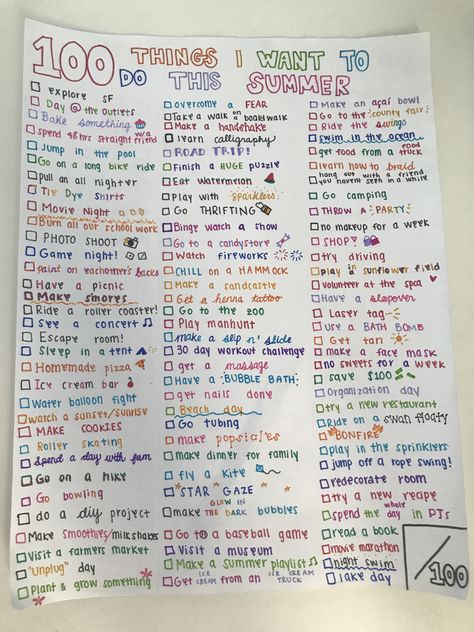 100 THINGS I WANT TO
DO THIS SUMMER
explore SF
Day @ the outlets
Bake something
spend 48 hrs straight w/ a friend
Jump in the pool
Go on a long bike ride
Pull an all nighter
Tie Dye Shirts
Movie Night
Burn all our school work
PHOTO SHOOT
Game night!
paint on eachother's backs
Have a picnic
Make smores
Ride a roller coaster!
See a concert
Escape room!
Sleep in a tent
Homemade pizza
Ice cream bar
Water balloon fight
watch a sunset/sunrise
MAKE COOKIES
Roller skating
Spend a day with fam
Go on a hike
Go bowling
do a diy project
Make Smoothies/milkshakes
Visit a farmers market
"Unplug" day
Plant & grow something
overcome a FEAR
Take a walk on a boardwalk
Make a handshake
learn calligraphy
ROAD TRIP!
Finish a HUGE puzzle
Eat Watermelon
Play with sparklers
Go THRIFTING
Binge watch a show
Go to a candystore
Watch fireworks
CHILL on a HAMMOCK
Make a sandcastle
Get a henna tattoo
Go to the zoo
Play manhunt
make a slip n' slide
30 day workout challenge
get a massage
Have a BUBBLE BATH
get nails done
Beach day
Go tubing
make popsicles
make dinner for family
fly a kite
"STAR" GAZE
make GLOW IN THE DARK bubbles
Go to a baseball game
Visit a museum
Make a Summer playlist
Get ICE CREAM from an ICE CREAM TRUCK
Make an açaí bowl
Go to the county fair
Ride the swings
swim in the ocean
get food from a food truck
learn how to braid
hang out with a friend you havent seen in a while
Go camping
THROW A PARTY
no makeup for a week
SHOP!
try driving
play in sunflower field
volunteer at the spa
Have a sleepover
Laser tag
USE a BATH BOMB
Get tan
make a face mask
no sweets for a week
save $100
Organization day
try a new restaurant
Ride on a swan floaty
"BONFIRE"
play in the sprinklers
jump off a rope swing!
redecorate room
try a new recape
spend the whole day in PJs
read a book
movie marathon
night swim
lake day
/100